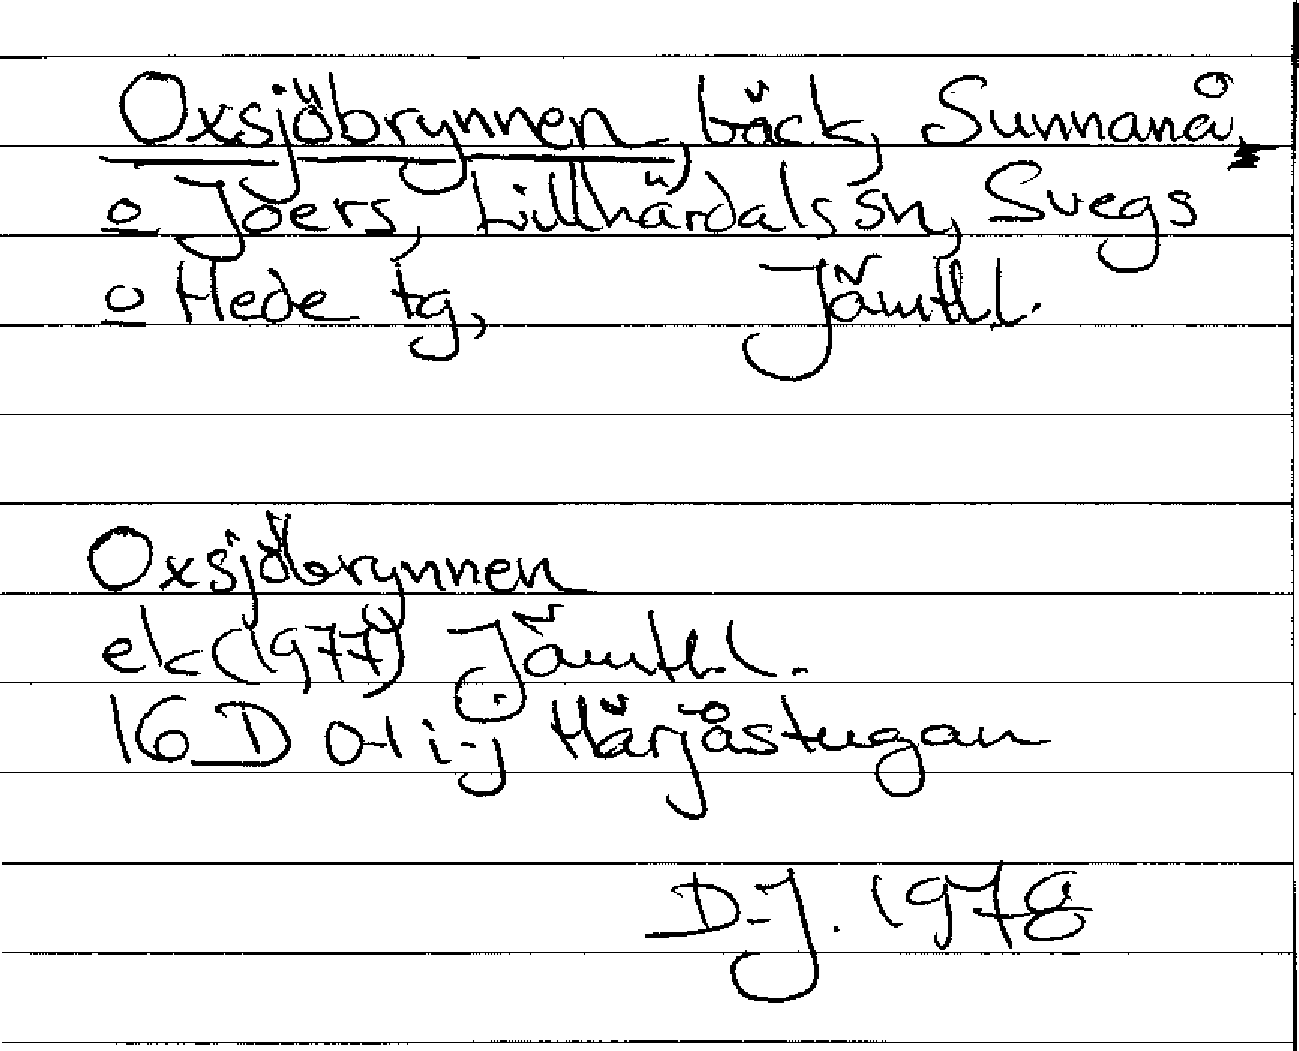 Oxsjöbrynnen, bäck, Sunnanå
o Joers, Lillhärdals sn, Svegs
o Hede tg, Jämtl.
Oxsjöbrynnen
ek (1977) Jämtl.
16 D 0-1 i-j Härjåstugan
D-J. 1978